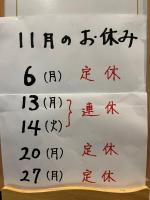 11月のお休み
6(月) 定休
13(月)
14(火) } 連休
20(月) 定休
27(月) 定休